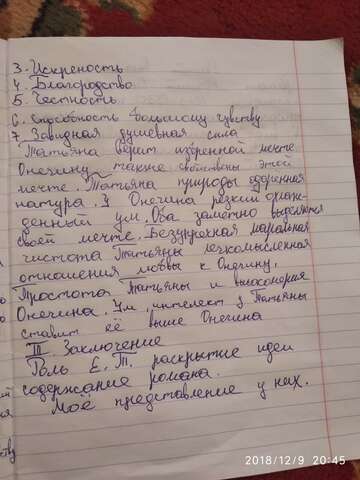 3. Искреность
4. Благородство
5. Честность
6. Способность большому чувству
7. Завидная душевная сила
Татьяна верит избренной мечте
Онегину также свойствены этой
мечте. Татьяна природы одаренная
натура. У Онегина резкий охлаж-
денный ум. Оба заметно выделяются
своей мечте. Безупречная маральная
чистота Татьяны легкомысленная
отношения любвы к Онегину.
Простота Татьяны и высокомерия
Онегина. Ум, интелект у Татьяны
ставит её выше Онегина
III Заключение
Роль Е. Т. раскрытие идеи
содержание романа.
Моё представление у них.
ству
2018/12/9 20:45